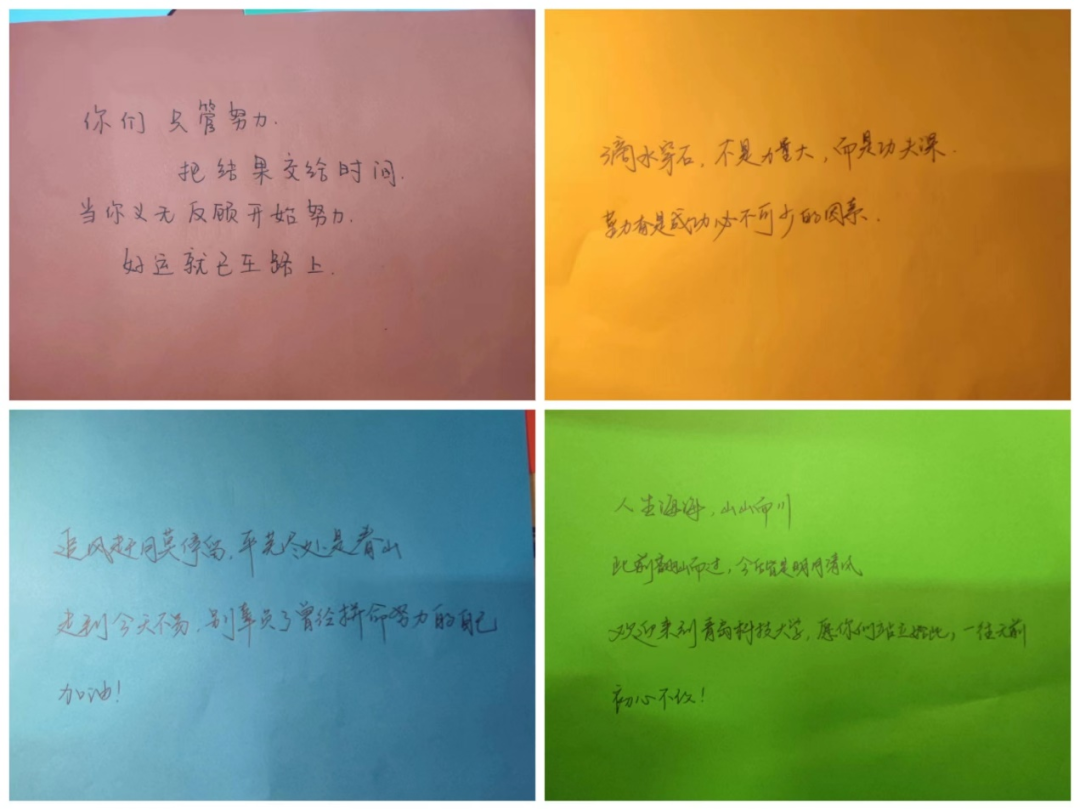 你们只管努力.
把结果交给时间.
当你义无反顾开始努力.
好运就已在路上.
滴水穿石，不是力量大，而是功夫深.
勤奋是成功必不可少的因素.
追风赶月莫停留，平芜尽处是春山
走到今天不易，别辜负了曾经拼命努力的自己
加油！
人生海海，山山而川
此前翻山而过，今后皆是明月清风
欢迎来到青岛科技大学，愿你们站立于此，一往无前
初心不改！